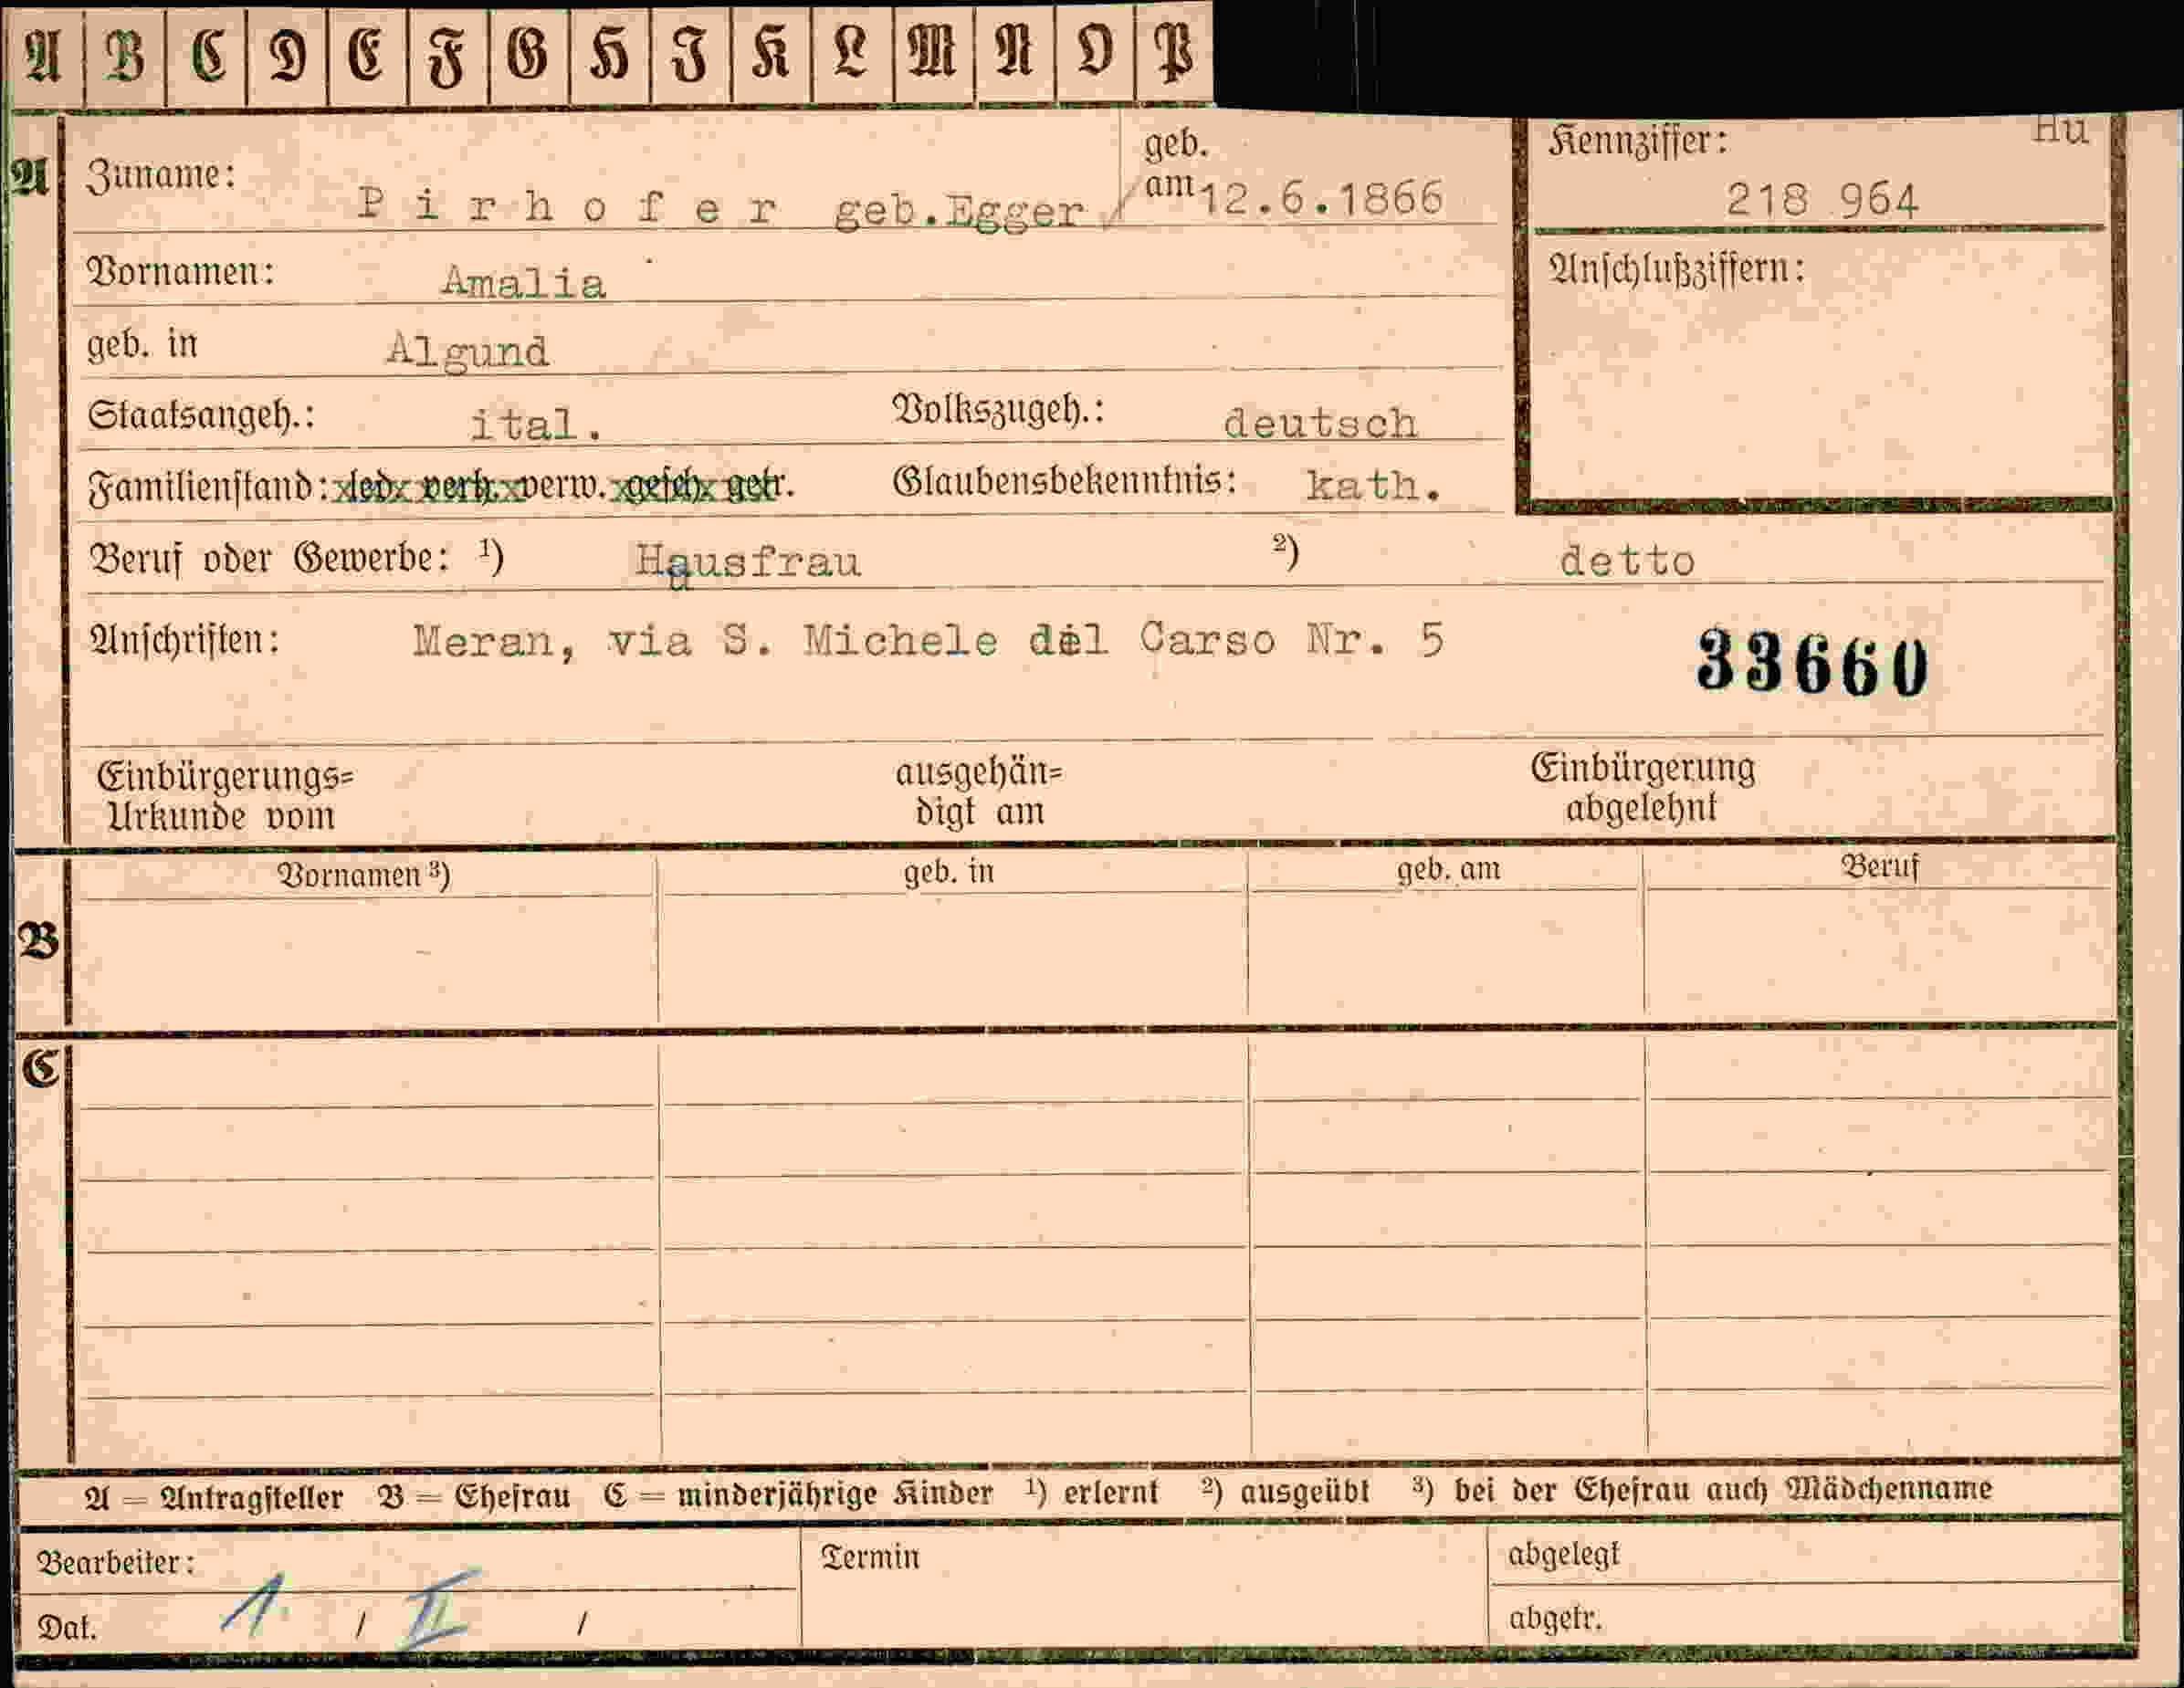 A B C D E F G H I K L M N O P
geb.
Kennziffer: Hu
A Zuname: Pirhofer geb.Egger / am 12.6.1866
218 964
Vornamen: Amalia
Anschlußziffern:
geb. in Algund
Staatsangeh.: ital. Volkszugeh.: deutsch
Familienstand: led. verh. verw. gesch. getr. Glaubensbekenntnis: kath.
Beruf oder Gewerbe: ¹) Hausfrau ²) detto
Anschriften: Meran, via S. Michele del Carso Nr. 5
33660
Einbürgerungs= ausgehän= Einbürgerung
Urkunde vom digt am abgelehnt
Vornamen ³) geb. in geb. am Beruf
B
C
A = Antragsteller B = Ehefrau C = minderjährige Kinder ¹) erlernt ²) ausgeübt ³) bei der Ehefrau auch Mädchenname
Bearbeiter: Termin abgelegt
Dat. 1 / II / abgetr.